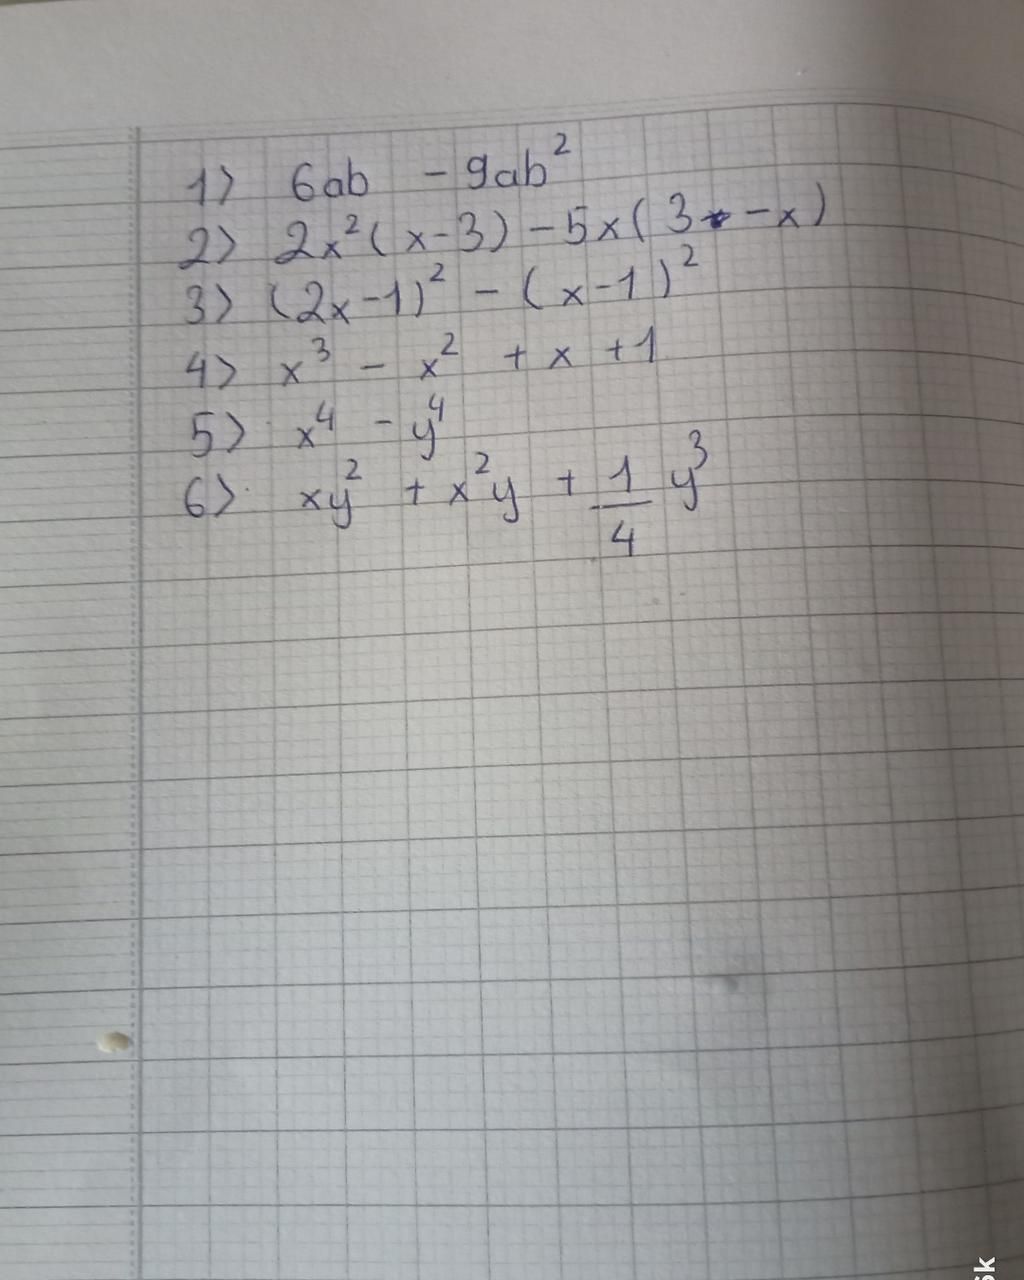 1) 6ab - 9ab²
2) 2x²(x-3) - 5x(3 - x)
3) (2x-1)² - (x-1)²
4) x³ - x² + x + 1
5) x⁴ - y⁴
6) xy² + x²y + 1/4 y³